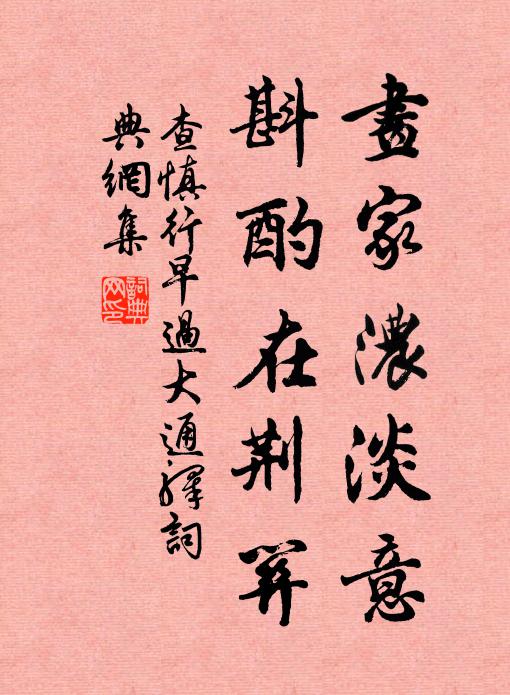 畫家濃淡意
斟酌在荆關
查慎行早過大通驛詞
典網集
詞典
网印